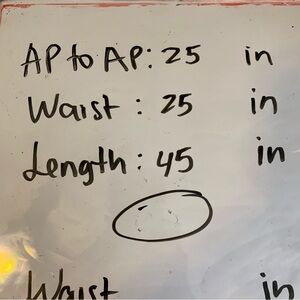 AP to AP: 25 in
Waist : 25 in
Length : 45 in
Waist in